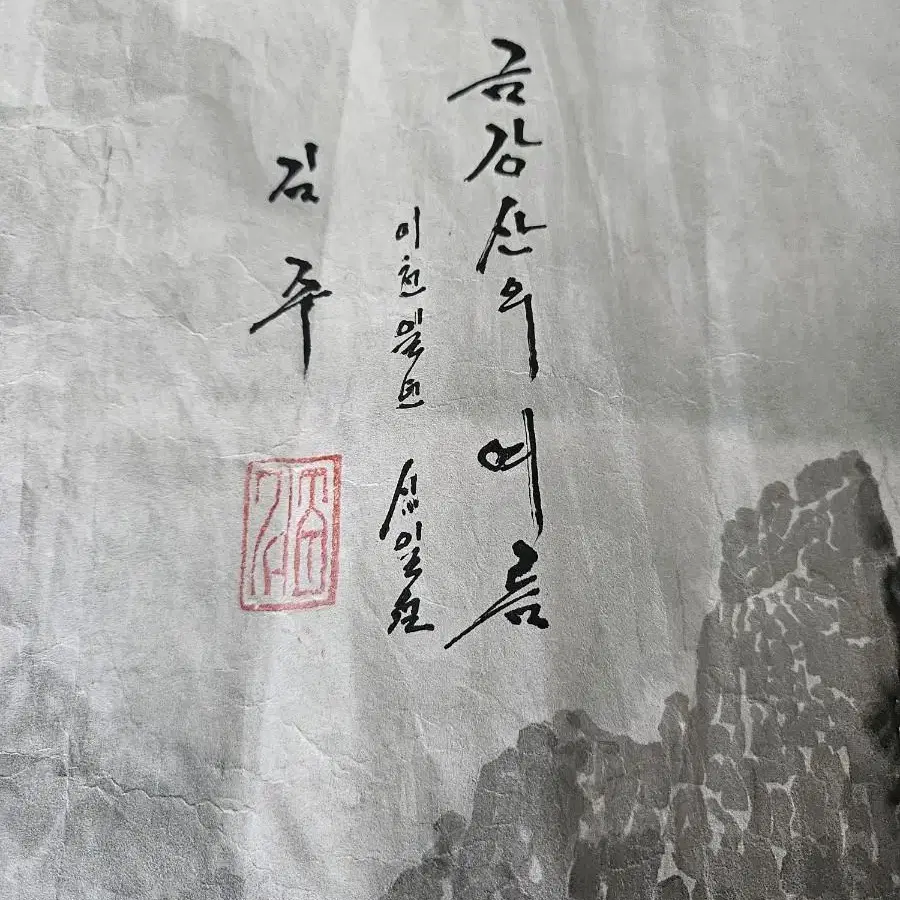 금강산의 여름
이천일년 십일월
김주